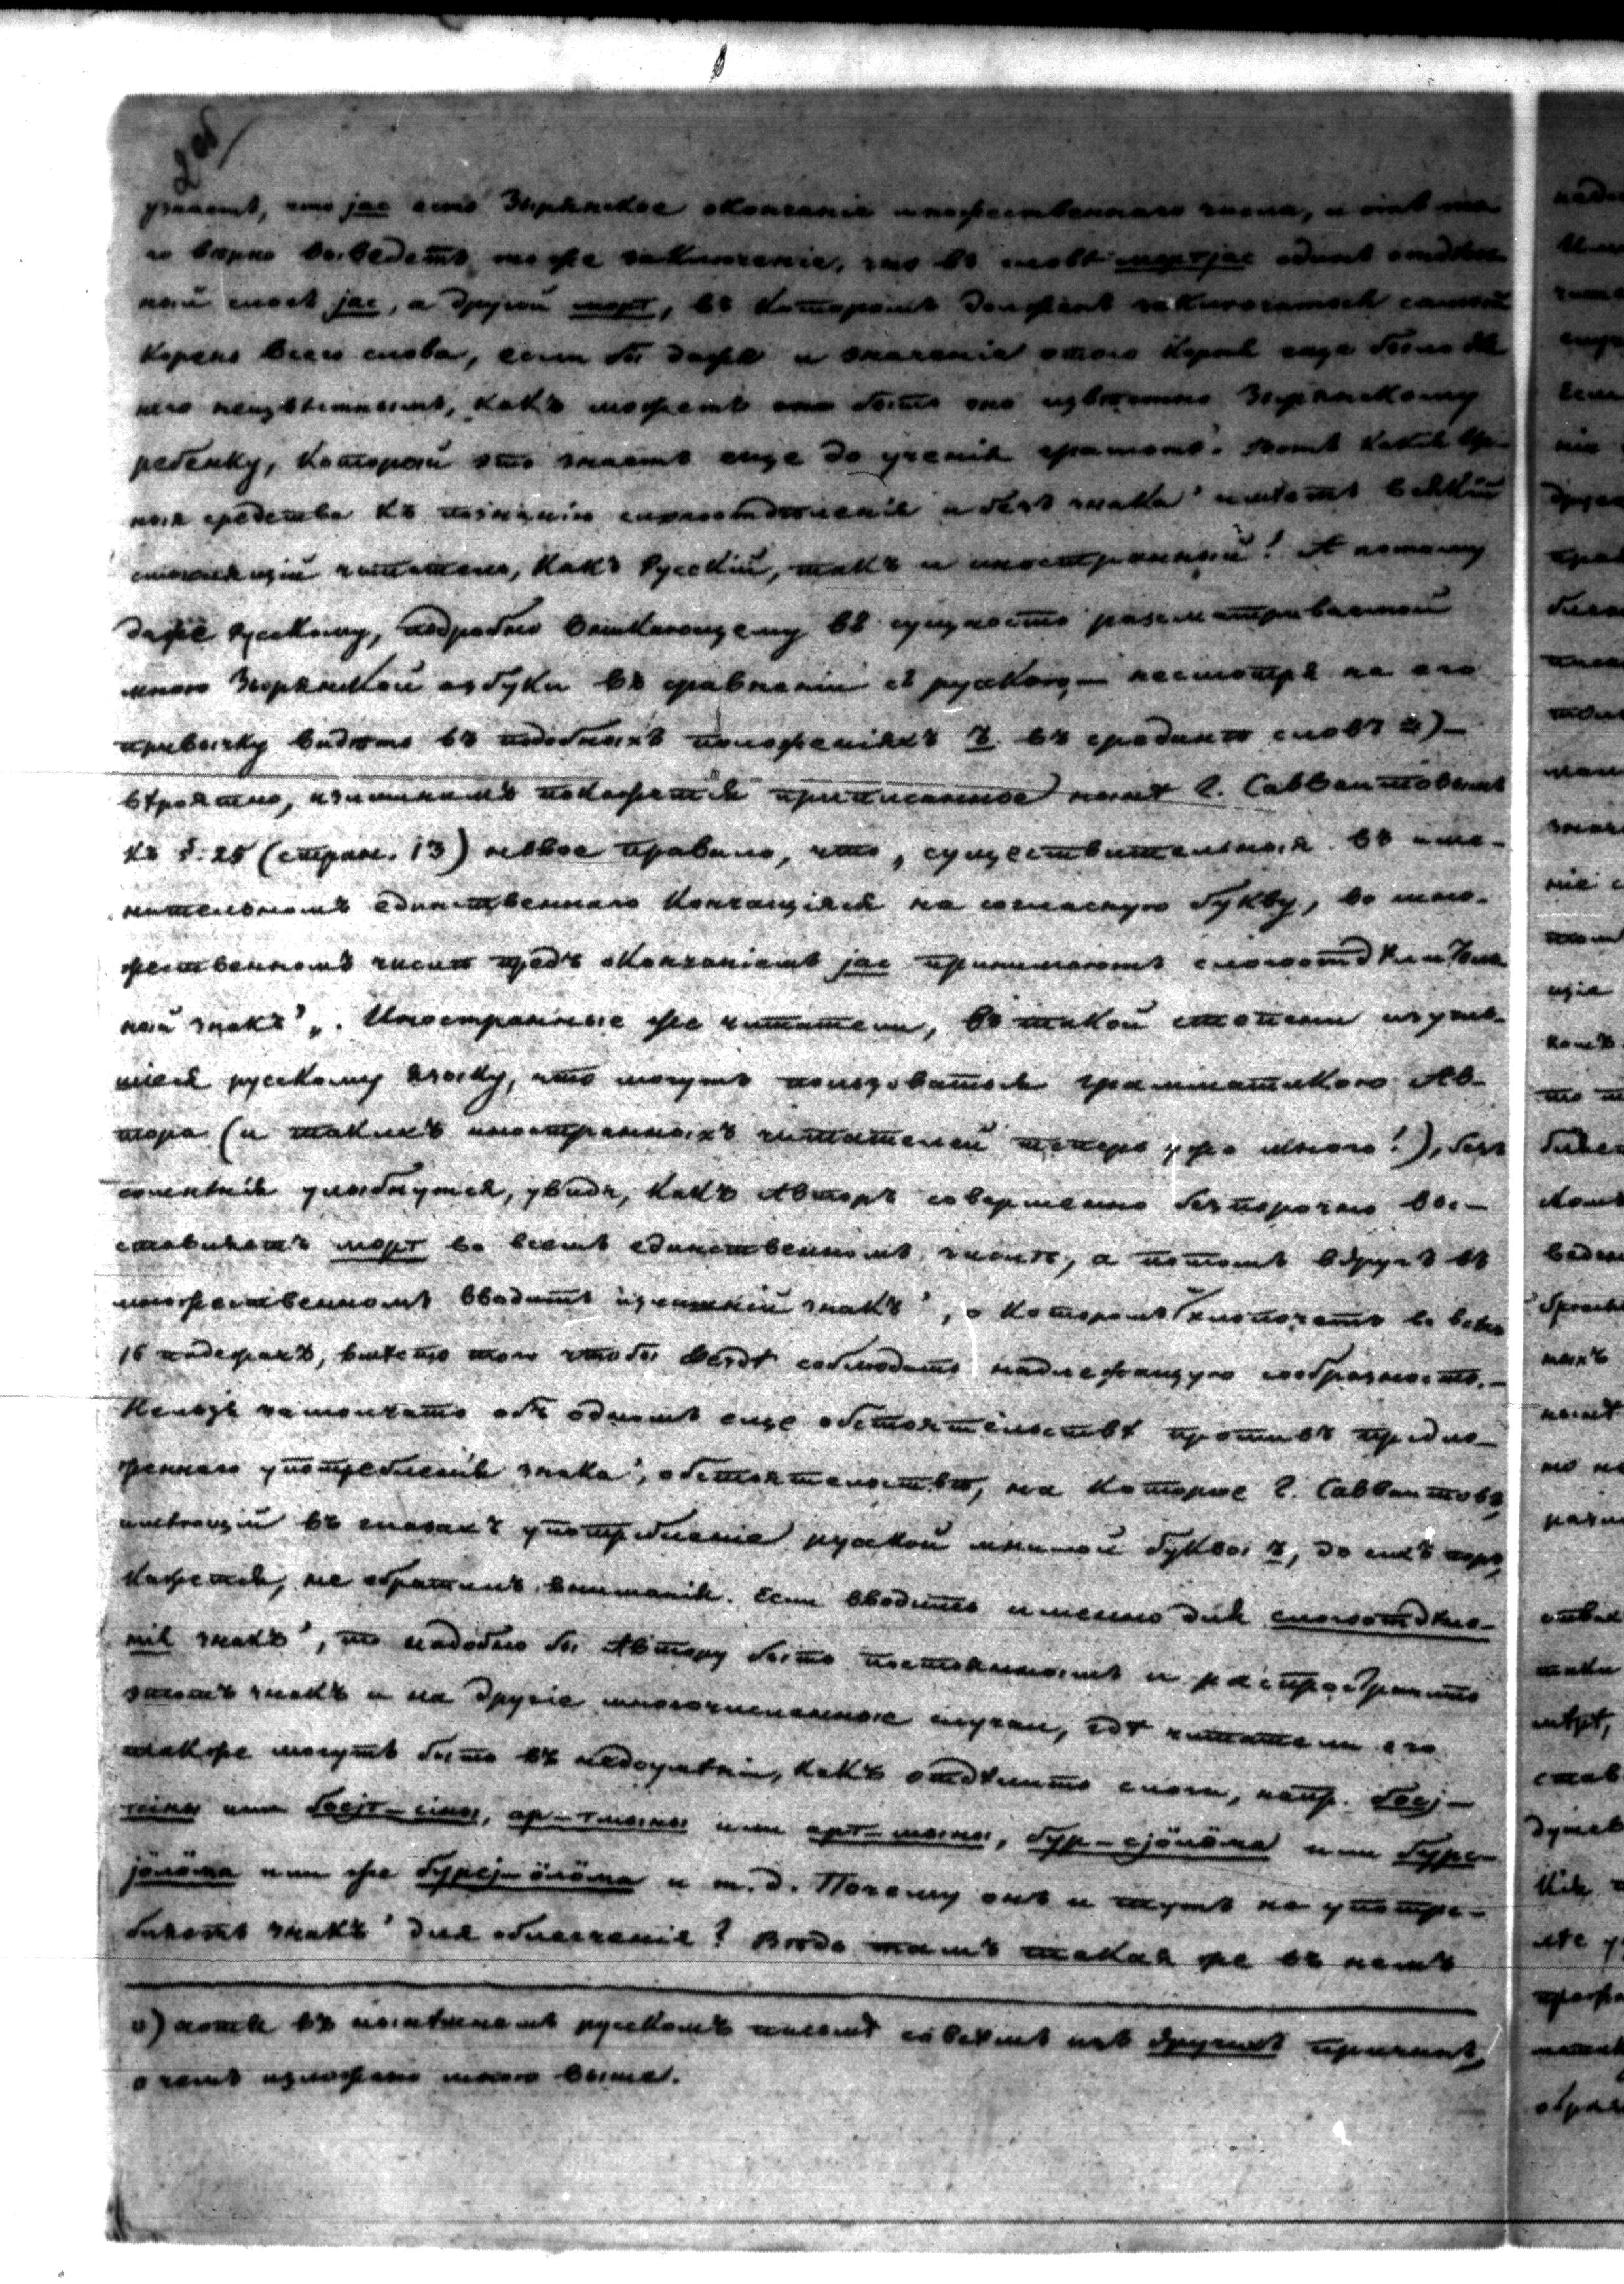 2 об
узнаетъ, что jас есть Зырянское окончаніе множественнаго числа, и отъ то-
го вѣрно выведетъ то же заключеніе, что въ словѣ мортjас одинъ отдѣль-
ный слогъ jас, а другой морт, въ которомъ долженъ заключаться самый
корень всего слова, если бы даже и значеніе этого корня еще было для
него неизвѣстнымъ, какъ можетъ быть оно извѣстно Зырянскому
ребенку, который это знаетъ еще до ученія грамотѣ. Вотъ какія вѣр-
ныя средства къ познанію слогоотдѣленія и безъ знака ' имѣетъ всякій
смыслящій читатель, какъ Русскій, такъ и иностранный! А потому
даже Русскому, подробно вникающему въ сущность разсматриваемой
мною Зырянской азбуки въ сравненіи съ русскою, — несмотря на его
привычку видѣть въ подобныхъ положеніяхъ ъ въ срединѣ словъ и) —
вѣроятно, излишнимъ покажется приписанное нынѣ Г. Савваитовымъ
къ §. 25 (стран. 13) новое правило, что „существительныя въ име-
нительномъ единственнаго кончащіяся на согласную букву, во мно-
жественномъ числѣ предъ окончаніемъ jас принимаютъ слогоотдѣлитель-
ный знакъ ' „. Иностранные же читатели, въ такой степени изучив-
шіеся русскому языку, что могутъ пользоваться грамматикою Ав-
тора (и такихъ иностранныхъ читателей теперь уже много!), безъ
сомнѣнія улыбнутся, увидя, какъ Авторъ совершенно безпорочно вы-
ставляетъ морт во всемъ единственномъ числѣ, а потомъ вдругъ въ
множественномъ вводитъ излишній знакъ ', о которомъ хлопочетъ во всѣхъ
16 падежахъ, вмѣсто того чтобы вездѣ соблюдать надлежащую сообразность. —
Нельзя замолчать объ одномъ еще обстоятельствѣ противъ предло-
женнаго употребленія знака ', обстоятельствѣ, на которое Г. Савваитовъ,
имѣющій въ глазахъ употребленіе русской мнимой буквы ъ, до сихъ поръ,
кажется, не обратилъ вниманія. Если вводить именно для слогоотдѣле-
нія знакъ ', то надобно бы Автору быть постояннымъ и распространить
этотъ знакъ и на другіе многочисленные случаи, гдѣ читатели его
также могутъ быть въ недоумѣніи, какъ отдѣлить слоги, напр. босj-
тсіны или босjт-сіны, ар-тмыны или арт-мыны, бур-сjöлöма или бурс-
jöлöма или же бурсj-öлöма и т. д. Почему онъ и тутъ не употре-
бляетъ знакъ ' для облегченія? Вѣдь тамъ такая же въ немъ
и) хотя въ нынѣшнемъ русскомъ письмѣ совсѣмъ изъ другихъ причинъ,
о чемъ изложено мною выше.